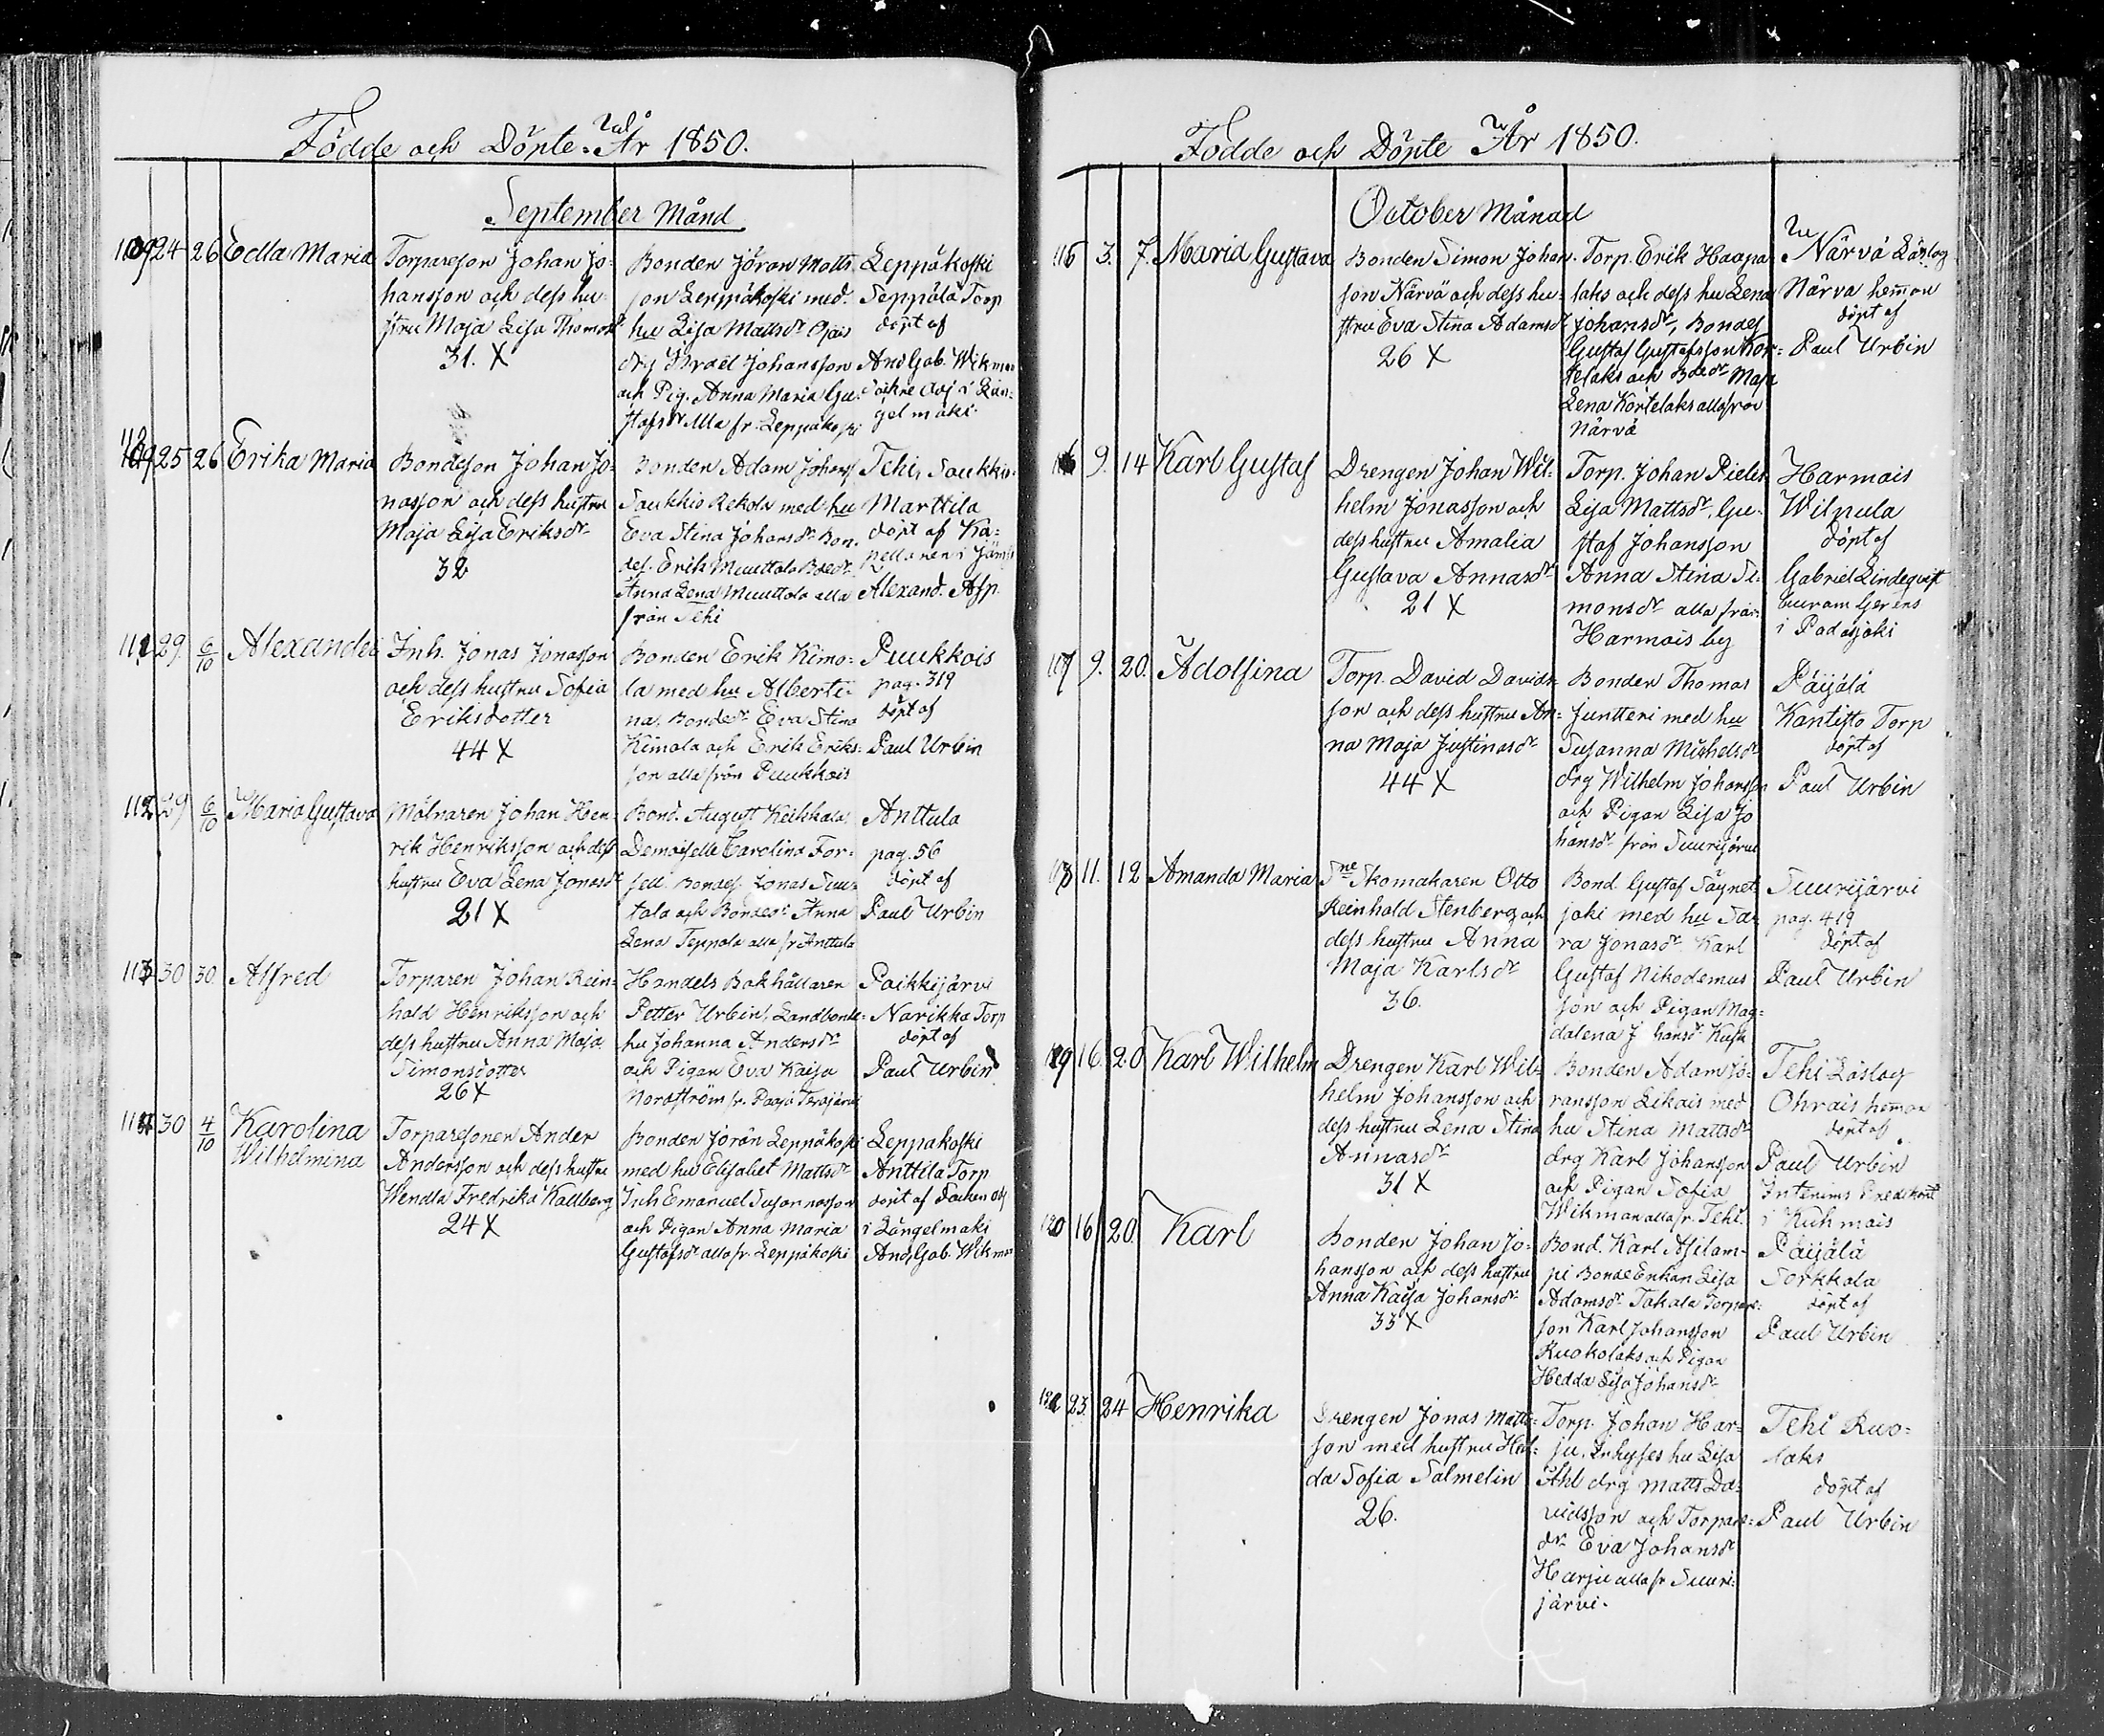 Födde och Döpte År 1850.
September Månd
109 24 26 Edla Maria
Torpareson Johan Jo-
hansson och dess hu-
stru Maja Lisa Thomasdr
31. X
Bonden Jöran Matts-
son Leppäkoski med
hu Lisa Mattsdr
drg Israel Johansson
och Pig. Anna Maria Gu-
stafsdr alla fr. Leppäkoski
Leppäkoski
Seppälä Torp
döpt af
And Gab. Wikman
i Län-
gelmäki.
25 26 Erika Maria
Bondeson Johan Jo-
nasson och dess hustru
Maja Lisa Eriksdr
32
Bonden Adam Johans
Saukkio Rekola med hu
Eva Stina Johansdr Bon-
des. Erik Muuttola Bdedr
Anna Lena Muuttola alla
från Tehi
Tehi, Saukkio
Marttila
döpt af Ka-
pellanen i Jämsä
Alexand. Asp.
111 29 6/10 Alexander
Inh. Jonas Jonasson
och dess hustru Sofia
Eriksdotter
44 X
Bonden Erik Kimo-
la med hu Alberti-
na, Bondedr Eva Stina
Kimola och Erik Eriks-
son alla från Puukkois
Puukkois
pag. 319
döpt af
Paul Urbin
112 29 6/10 Maria Gustava
Mölnaren Johan Hen-
rik Henriksson och dess
hustru Eva Lena Jonasdr
21 X
Bond. August Keikkala
Demoiselle Carolina For-
sell. Bondes. Jonas Suu-
tala och Bondedr Anna
Lena Teppola alla fr Anttula
Anttula
pag. 56
döpt af
Paul Urbin
113 30 30 Alfred
Torparen Johan Rein-
hold Henriksson och
dess hustru Anna Maja
Simonsdotter
26 X
Handels Bokhållaren
Petter Urbin, Landbonde-
hu Johanna Andersdr
och Pigan Eva Kaisa
Nordström fr.
Paikkijärvi
Narikka Torp
döpt af
Paul Urbin
114 30 4/10 Karolina
Wilhelmina
Torparesonen Ander
Andersson och dess hustru
Wendla Fredrika Kallberg
24 X
Bonden Jöran Leppäkoski
med hu Elisabet Mattsdr
Inh Emanuel Susannasson
och Pigan Anna Maria
Gustafsdr alla fr. Leppäkoski
Leppäkoski
Anttila Torp
döpt af Socken adj
i Längelmäki
And. Gab. Wikman
Födde och Döpte År 1850.
October Månad
115 3. 7. Maria Gustava
Bonden Simon Johan-
son Närvä och dess hu-
stru Eva Stina Adamsdr
26 X
Torp. Erik Haapa-
laks och dess hu Lena
Johansdr, Bondes
Gustaf Gustafsson Kor-
telaks och Bdedr Maja
Lena Kortelaks alla från
Närvä
Närvä Löslag
Närvä hemman
döpt af
Paul Urbin
116 9. 14 Karl Gustaf
Drengen Johan Wil-
helm Jonasson och
dess hustru Amalia
Gustava Annasdr
21 X
Torp. Johan Pieles
Lisa Mattsdr, Gu-
staf Johansson
Anna Stina Si-
monsdr alla från
Harmois by
Harmois
Wilpula
döpt af
Gabriel Lindeqvist
i Padasjoki
117 9. 20. Adolfina
Torp. David Davids-
son och dess hustru An-
na Maja Justinasdr
44 X
Bonden Thomas
Juntteri med hu
Susanna Michelsdr
drg Wilhelm Johansson
och Pigan Lisa Jo
hansdr från Suurijärvi
Päijälä
Kantisto Torp
döpt af
Paul Urbin
118 11. 12 Amanda Maria
Sne Skomakaren Otto
Reinhold Stenberg och
dess hustru Anna
Maja Karlsdr
36.
Bond. Gustaf Säynet-
joki med hu Sa-
ra Jonasdr Karl
Gustaf Nikodemus
son och Pigan Mag-
dalena
Suurijärvi
pag. 419
döpt af
Paul Urbin
119 16. 20 Karl Wilhelm
Drengen Karl Wil-
helm Johansson och
dess hustru Lena Stina
Annasdr
31 X
Bonden Adam Jö-
ransson Likais med
hu Stina Mattsdr
drg Karl Johansson
och Pigan Sofia
Wikman alla fr. Tehi.
Tehi Löslag
Ohrais hemman
döpt af
Paul Urbin
Interims Predikant
i Kuhmois
120 16 20. Karl
Bonden Johan Jo-
hansson och dess hustru
Anna Kaisa Johansdr
33 X
Bond. Karl Asilam-
pi Bonde Enkan Lisa
Adamsdr Takala Torpare-
son Karl Johansson
Ruokolaks och Pigan
Hedda Lisa Johansdr
Päijälä
Torkkola
döpt af
Paul Urbin
121 23. 24 Henrika
Drengen Jonas Matts-
son med hustru Hed-
da Sofia Salmelin
26.
Torp. Johan Har-
ju, Inhyses hu Lisa
Åhl drg Matts Da-
vidsson och Torpare-
dr Eva Johansdr
Harju alla fr Suuri-
järvi.
Tehi Ruo-
laks
döpt af
Paul Urbin